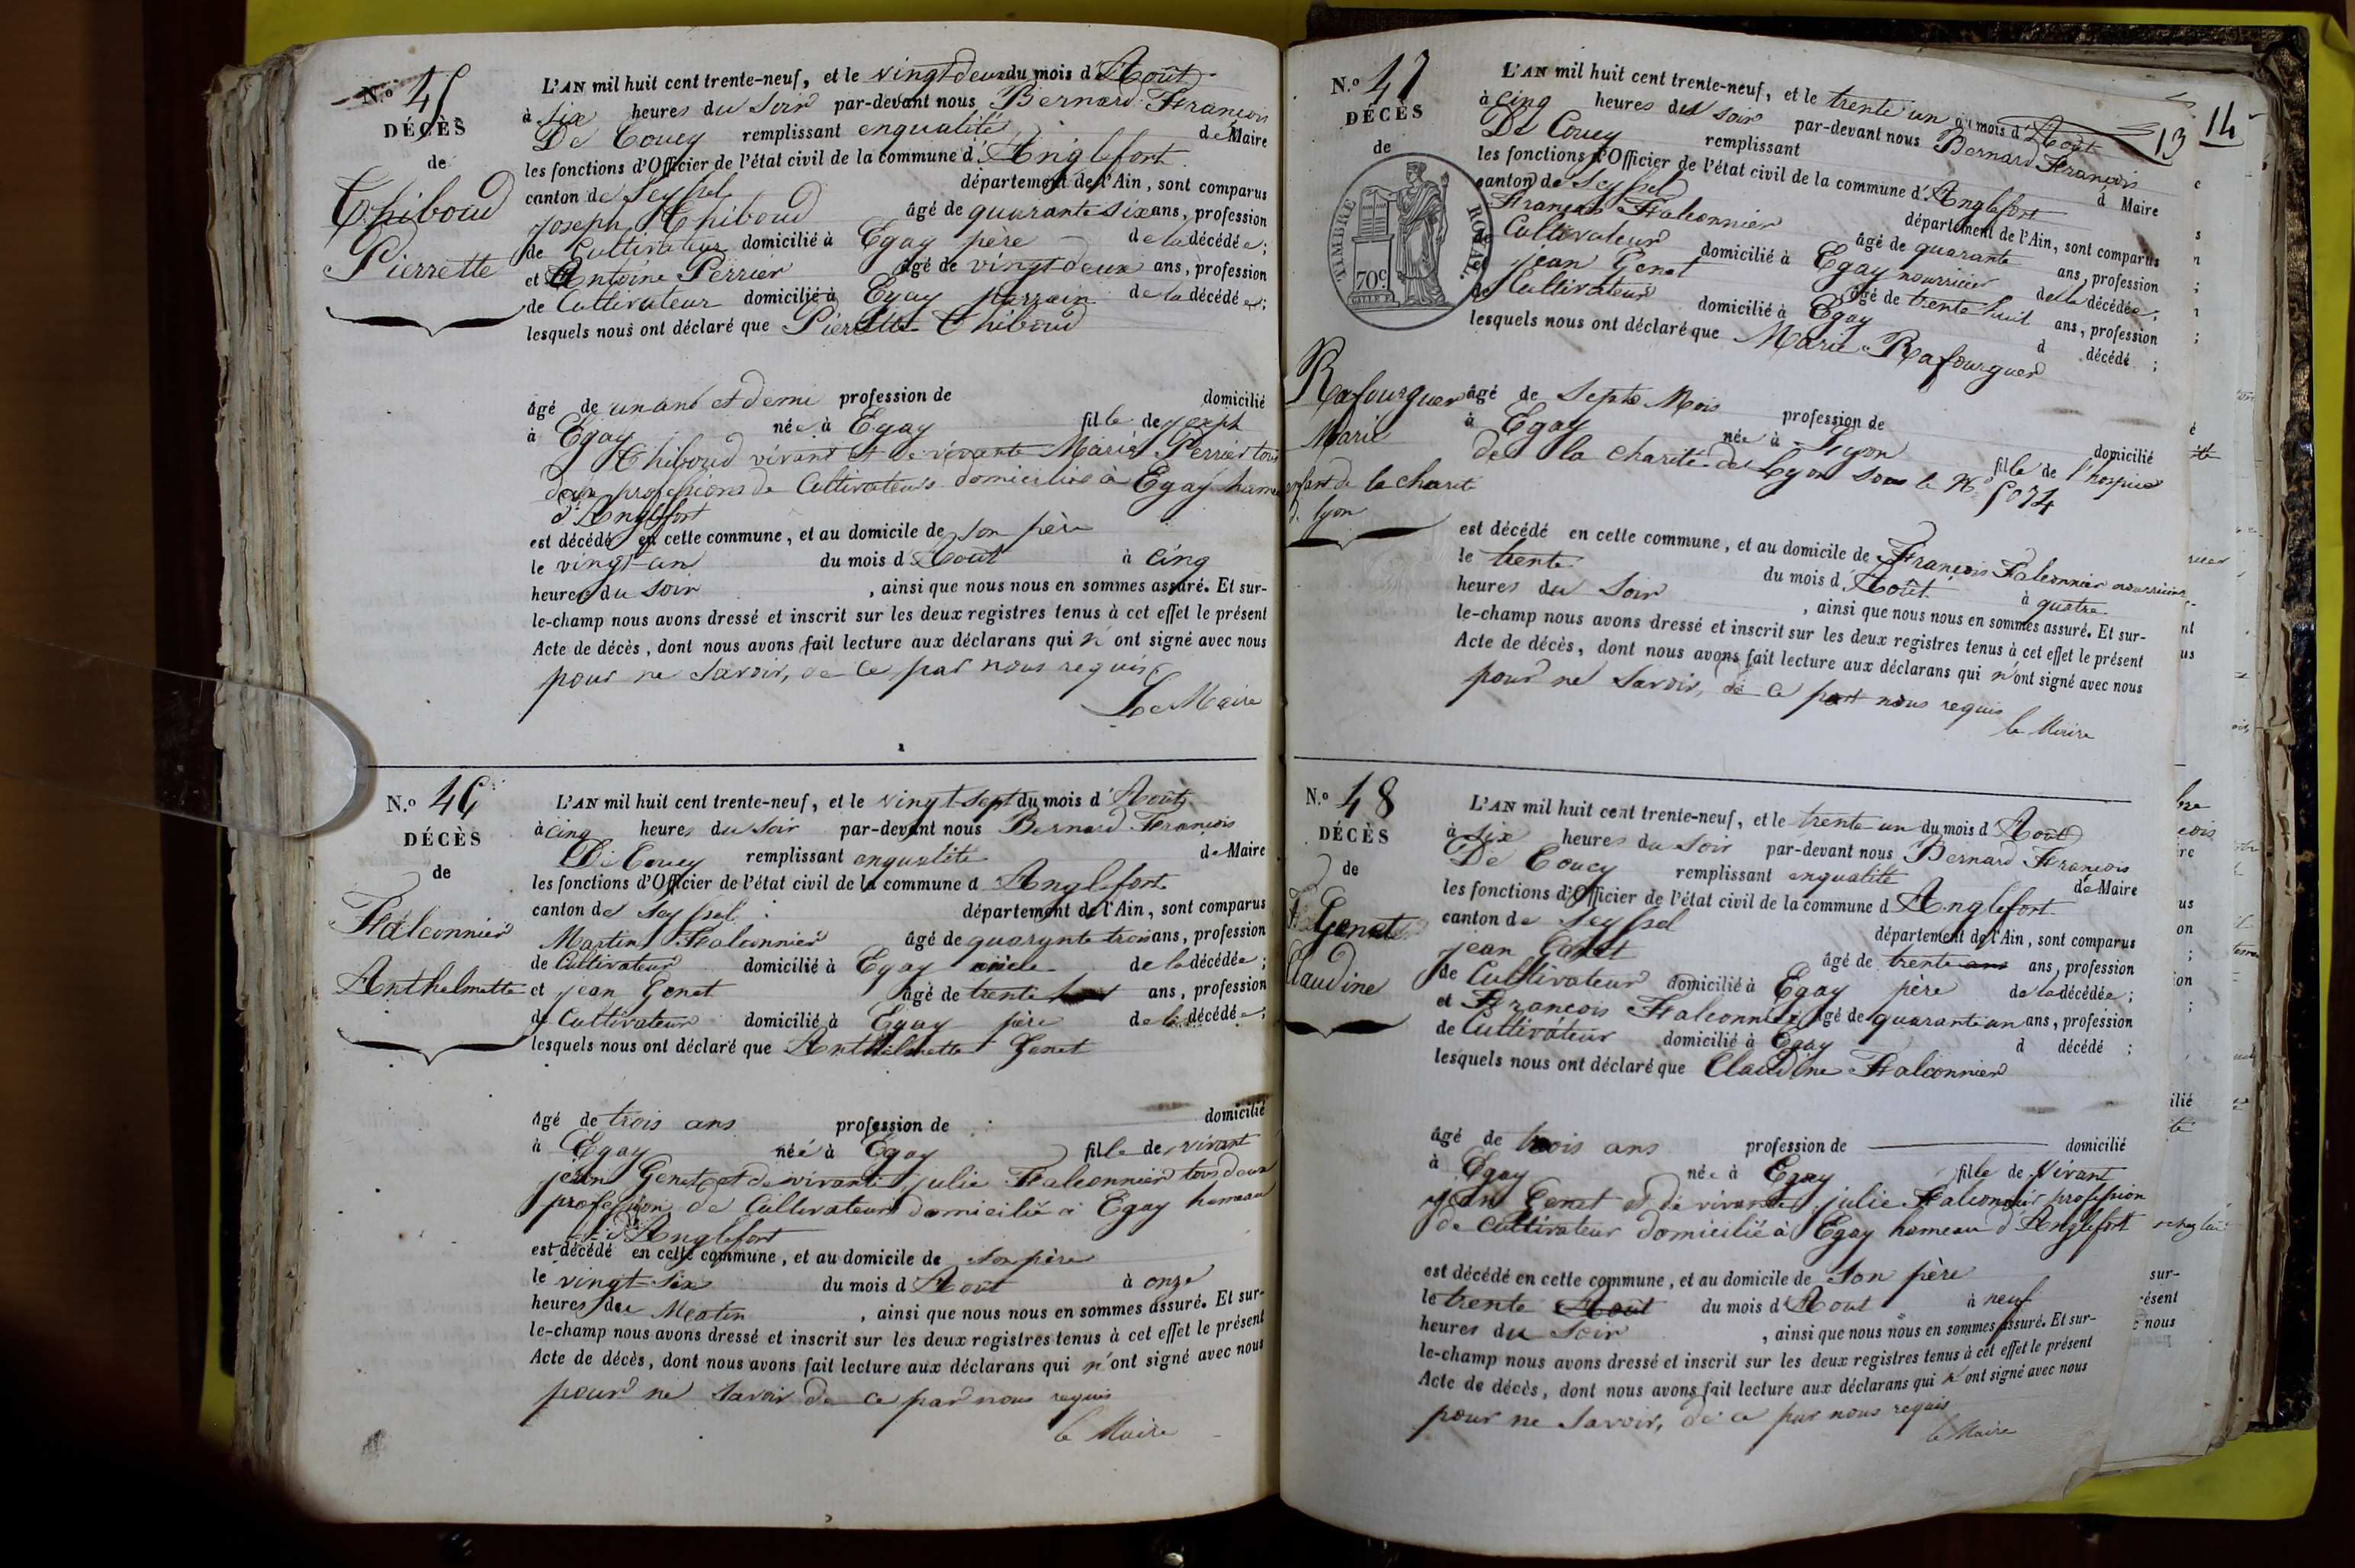 N.º 45
DÉCÈS
de
Thiboud
Pierrette
L'AN mil huit cent trente-neuf, et le vingt deux du mois d'Août
à six heures du soir par-devant nous Bernard François
De Coucy remplissant enqualité de Maire
les fonctions d'Officier de l'état civil de la commune d'Anglefort
canton de Seyssel département de l'Ain, sont comparus
Joseph Thiboud âgé de quarante six ans, profession
de Cultivateur domicilié à Egay père de la décédée;
et Antoine Perrier âgé de vingt deux ans, profession
de Cultivateur domicilié à Egay parrain de la décédée;
lesquels nous ont déclaré que Pierrette Thiboud
âgé de un ans et demi profession de domicilié
à Egay née à Egay fille de joseph
Thiboud vivant et de vivante Marie Perrier tous
deux professions de Cultivateurs domiciliés à Egay hameau
d'Anglefort
est décédé en cette commune, et au domicile de son père
le vingt-un du mois d Août à cinq
heures du soir, ainsi que nous nous en sommes assuré. Et sur-
le-champ nous avons dressé et inscrit sur les deux registres tenus à cet effet le présent
Acte de décès, dont nous avons fait lecture aux déclarans qui n'ont signé avec nous
pour ne savoir, de ce par nous requis
Le Maire
N.º 46
DÉCÈS
de
Falconnier
Anthelmette
L'AN mil huit cent trente-neuf, et le vingt-sept du mois d'Août
à cinq heures du soir par-devant nous Bernard François
De Coucy remplissant enqualité de Maire
les fonctions d'Officier de l'état civil de la commune d Anglefort
canton de Seyssel département de l'Ain, sont comparus
Martin Falconnier âgé de quarante trois ans, profession
de Cultivateur domicilié à Egay oncle de la décédée;
et jean Genet âgé de trente huit ans, profession
de Cultivateur domicilié à Egay père de la décédée;
lesquels nous ont déclaré que Anthelmette Genet
âgé de trois ans profession de domicilié
à Egay née à Egay fille de vivant
jean Genet et de vivante julie Falconnier tous deux
profession de Cultivateurs domicilié à Egay hameau
d'Anglefort
est décédé en cette commune, et au domicile de son père
le vingt-six du mois d Août à onze
heures du Matin, ainsi que nous nous en sommes assuré. Et sur-
le-champ nous avons dressé et inscrit sur les deux registres tenus à cet effet le présent
Acte de décès, dont nous avons fait lecture aux déclarans qui n'ont signé avec nous
pour ne savoir de ce par nous requis
le Maire
13 14
N.º 47
DÉCÈS
de
TIMBRE ROYAL
70c.
Rafourguer
Marie
enfant de la charité
de lyon
L'AN mil huit cent trente-neuf, et le trente un du mois d'Août
à cinq heures du soir par-devant nous Bernard François
De Coucy remplissant d Maire
les fonctions d'Officier de l'état civil de la commune d'Anglefort
canton de Seyssel département de l'Ain, sont comparus
François Falconnier âgé de quarante ans, profession
de Cultivateur domicilié à Egay nourricier de la décédée;
jean Genet âgé de trente huit ans, profession
de Cultivateur domicilié à Egay d décédé;
lesquels nous ont déclaré que Marie Rafourguer
âgé de Septe Mois profession de domicilié
à Egay née à Lyon fille de l'hospice
de la charité de Lyon sous le Nº 5074
est décédé en cette commune, et au domicile de François Falconnier nourricier
le trente du mois d'Août à quatre
heures du Soir, ainsi que nous nous en sommes assuré. Et sur-
le-champ nous avons dressé et inscrit sur les deux registres tenus à cet effet le présent
Acte de décès, dont nous avons fait lecture aux déclarans qui n'ont signé avec nous
pour ne savoir, de ce part nous requis
le Maire
N.º 48
DÉCÈS
de
Genet
Claudine
L'AN mil huit cent trente-neuf, et le trente un du mois d Août
à six heures du Soir par-devant nous Bernard François
De Coucy remplissant enqualité de Maire
les fonctions d'Officier de l'état civil de la commune d Anglefort
canton de Seyssel département de l'Ain, sont comparus
jean Genet âgé de trente ans ans, profession
de Cultivateur domicilié à Egay père de la décédée;
et François Falconnier âgé de quarante un ans, profession
de Cultivateur domicilié à Egay d décédé;
lesquels nous ont déclaré que Claudine Falconnier
âgé de trois ans profession de domicilié
à Egay née à Egay fille de Vivant
jean Genet et de vivante julie Falconnier profession
de Cultivateur domicilié à Egay hameau d'Anglefort
est décédé en cette commune, et au domicile de Son père
le trente Août du mois d'Août à neuf
heures du Soir, ainsi que nous nous en sommes assuré. Et sur-
le-champ nous avons dressé et inscrit sur les deux registres tenus à cet effet le présent
Acte de décès, dont nous avons fait lecture aux déclarans qui n'ont signé avec nous
pour ne savoir, de ce par nous requis
le Maire